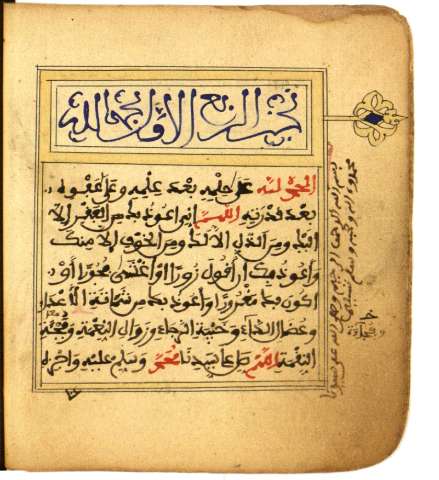 نجز الربع الأول بحمد الله
الحمد لله على حلمه بعد علمه وعلى عفوه
بعد قدرته اللهم إني أعوذ بك من الفقر إلا
إليك ومن الذل إلا لك ومن الخوف إلا منك
وأعوذ بك أن أقول زورا أو أغشى فجورا أو
أكون بك مغرورا وأعوذ بك من شماتة الأعداء
وعضال الداء وخيبة الرجاء وزوال النعمة وفجأة
النقمة اللهم صل على سيدنا محمد وسلم عليه واجزه
بسم الله الرحمن الرحيم وصلى الله على سيدنا
محمد وآله وصحبه وسلم تسليما